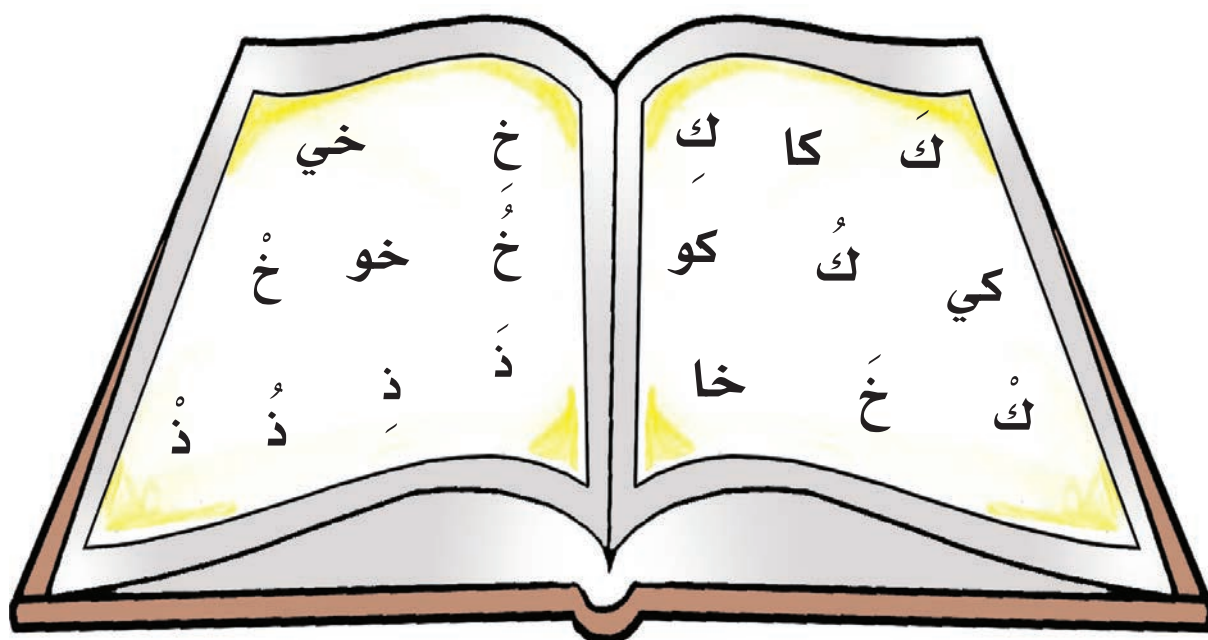 كَ كا كِ
كي كُ كو
كْ خَ خا
خِ خي
خُ خو خْ
ذَ ذِ ذُ ذْ